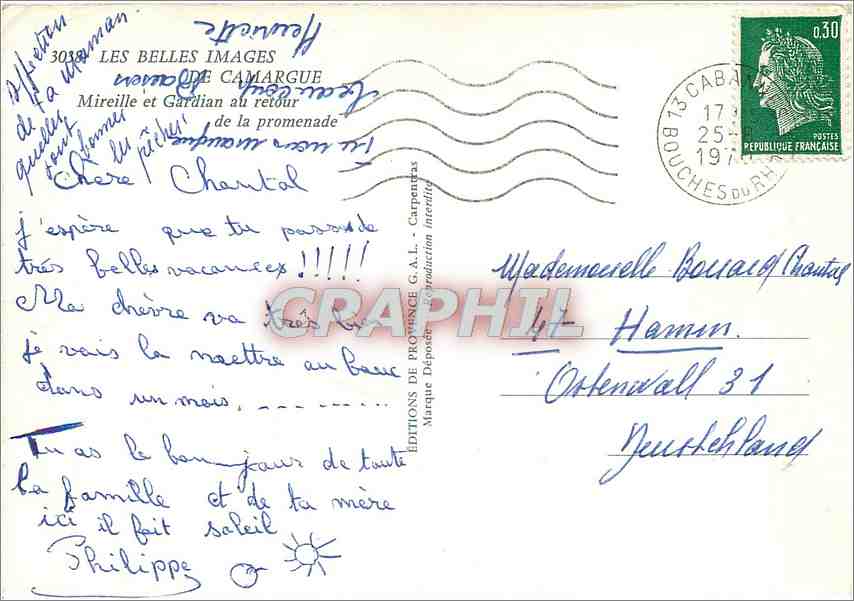 3038 LES BELLES IMAGES
DE CAMARGUE
Mireille et Gardian au retour
de la promenade
Affection
de ta maman
quelles
sont bonnes
les pêches!
Tu nous manque
Beaucoup Baisers
Henriette
Chère Chantal
j'espère que tu passes de
trés belles vacances!!!!!
Ma chèvre va très bien
je vais la mettre au bouc
dans un mois. --------
Tu as le bonjour de toute
la famille et de ta mère
ici il fait soleil
Philippe
ÉDITIONS DE PROVENCE G.A.L. - Carpentras
Marque Déposée - Reproduction interdite
0,30
POSTES
REPUBLIQUE FRANÇAISE
13 CABAN
17
25-8
197
BOUCHES DU RH
Mademoiselle Chantal
47 Hamm.
Ostenwall 31
Deustchland
CRAPHIL